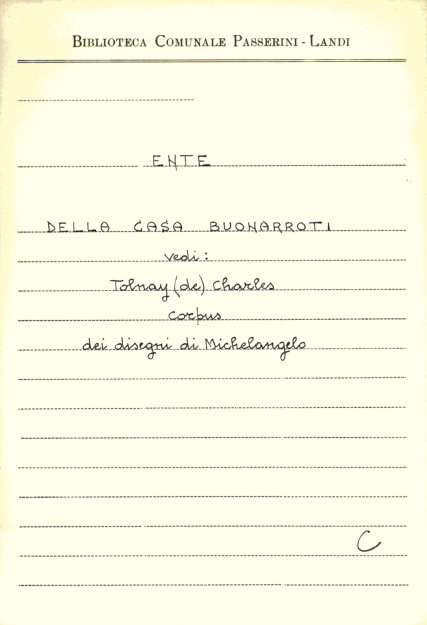 BIBLIOTECA COMUNALE PASSERINI - LANDI
ENTE
DELLA CASA BUONARROTI
vedi:
Tolnay (de) Charles
Corpus
dei disegni di Michelangelo
C